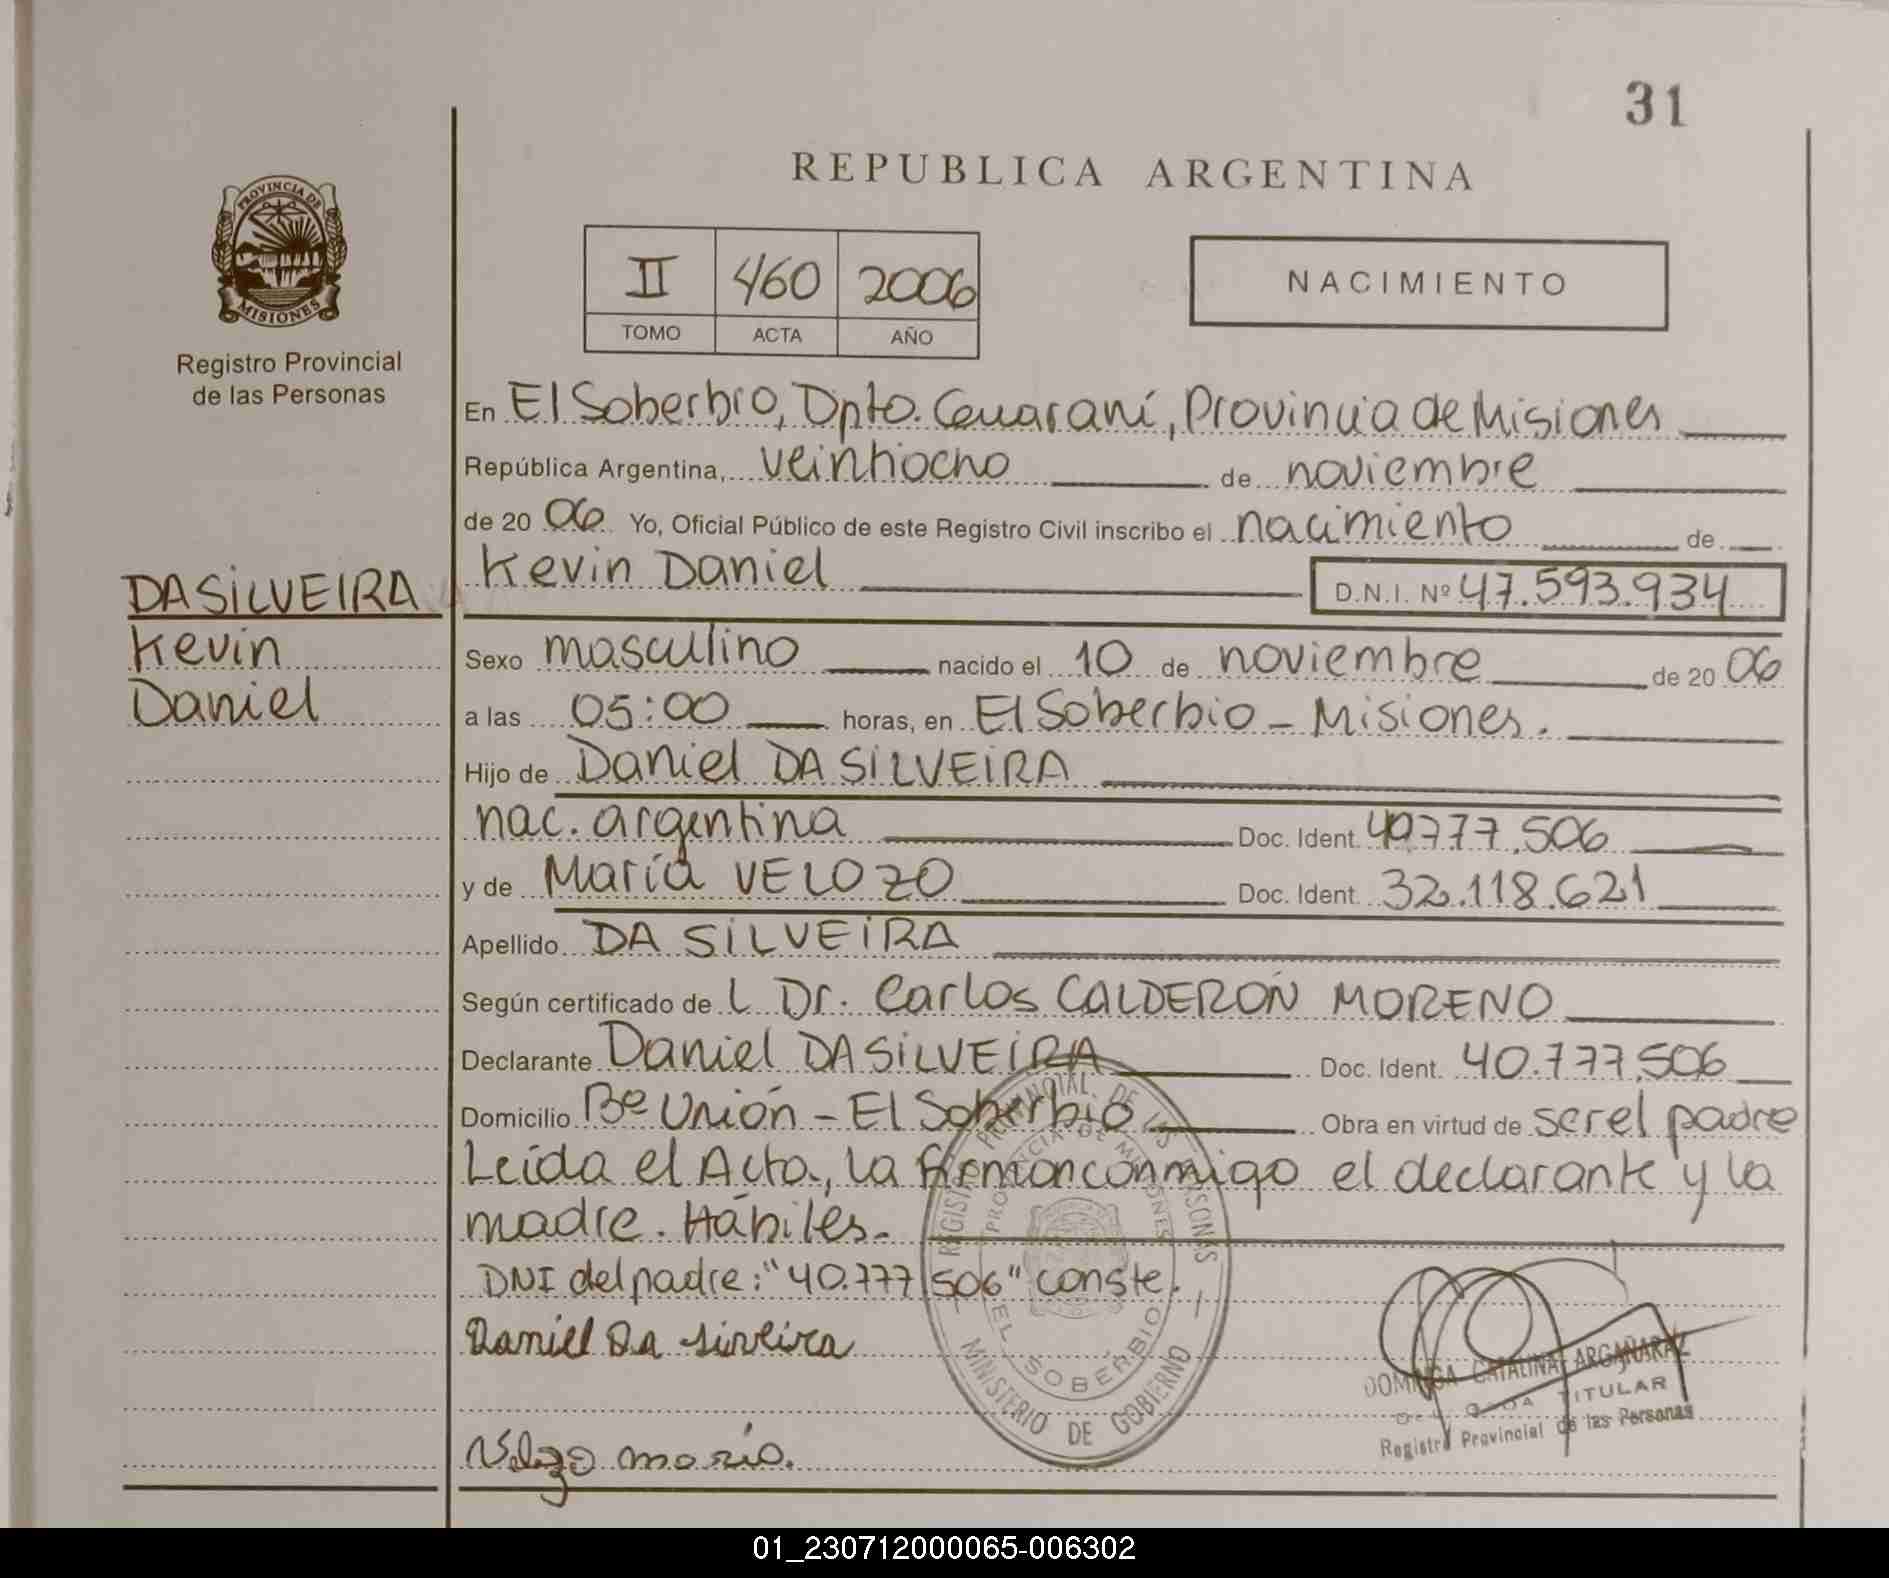 31
REPUBLICA ARGENTINA
PROVINCIA DE
MISIONES
Registro Provincial
de las Personas
II 460 2006
TOMO ACTA AÑO
NACIMIENTO
En El Soberbio, Dpto. Guaraní, Provincia de Misiones
República Argentina, veintiocho de noviembre
de 20 06 Yo, Oficial Público de este Registro Civil inscribo el nacimiento de
Kevin Daniel D.N.I. Nº 47.593.934
DA SILVEIRA
Kevin
Daniel
Sexo masculino nacido el 10 de noviembre de 20 06
a las 05:00 horas, en El Soberbio - Misiones.
Hijo de Daniel DA SILVEIRA
nac. argentina Doc. Ident. 40.777.506
y de María VELOZO Doc. Ident. 32.118.621
Apellido DA SILVEIRA
Según certificado de L Dr. Carlos CALDERÓN MORENO
Declarante Daniel DA SILVEIRA Doc. Ident. 40.777.506
Domicilio Bº Unión - El Soberbio Obra en virtud de ser el padre
Leída el Acta, la firman conmigo el declarante y la
madre. Hábiles.
DNI del padre: "40.777.506" conste.
Daniel Da Silveira
Velozo maría.
REGISTRO PROVINCIAL DE LAS PERSONAS
PROVINCIA DE MISIONES
EL SOBERBIO
MINISTERIO DE GOBIERNO
DOMINGA CATALINA ARGAÑARAZ
TITULAR
Registro Provincial de las Personas
01_230712000065-006302